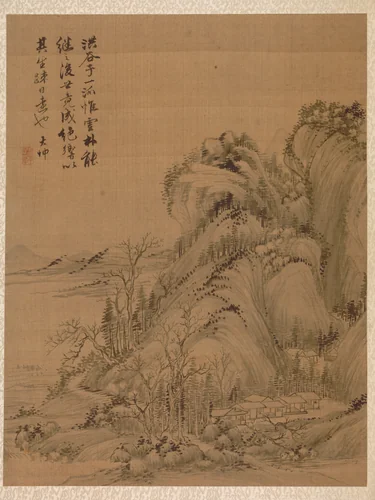 洪谷子一派惟雲林能
繼之後世竟成絕響以
其生疎日甚也 大坤